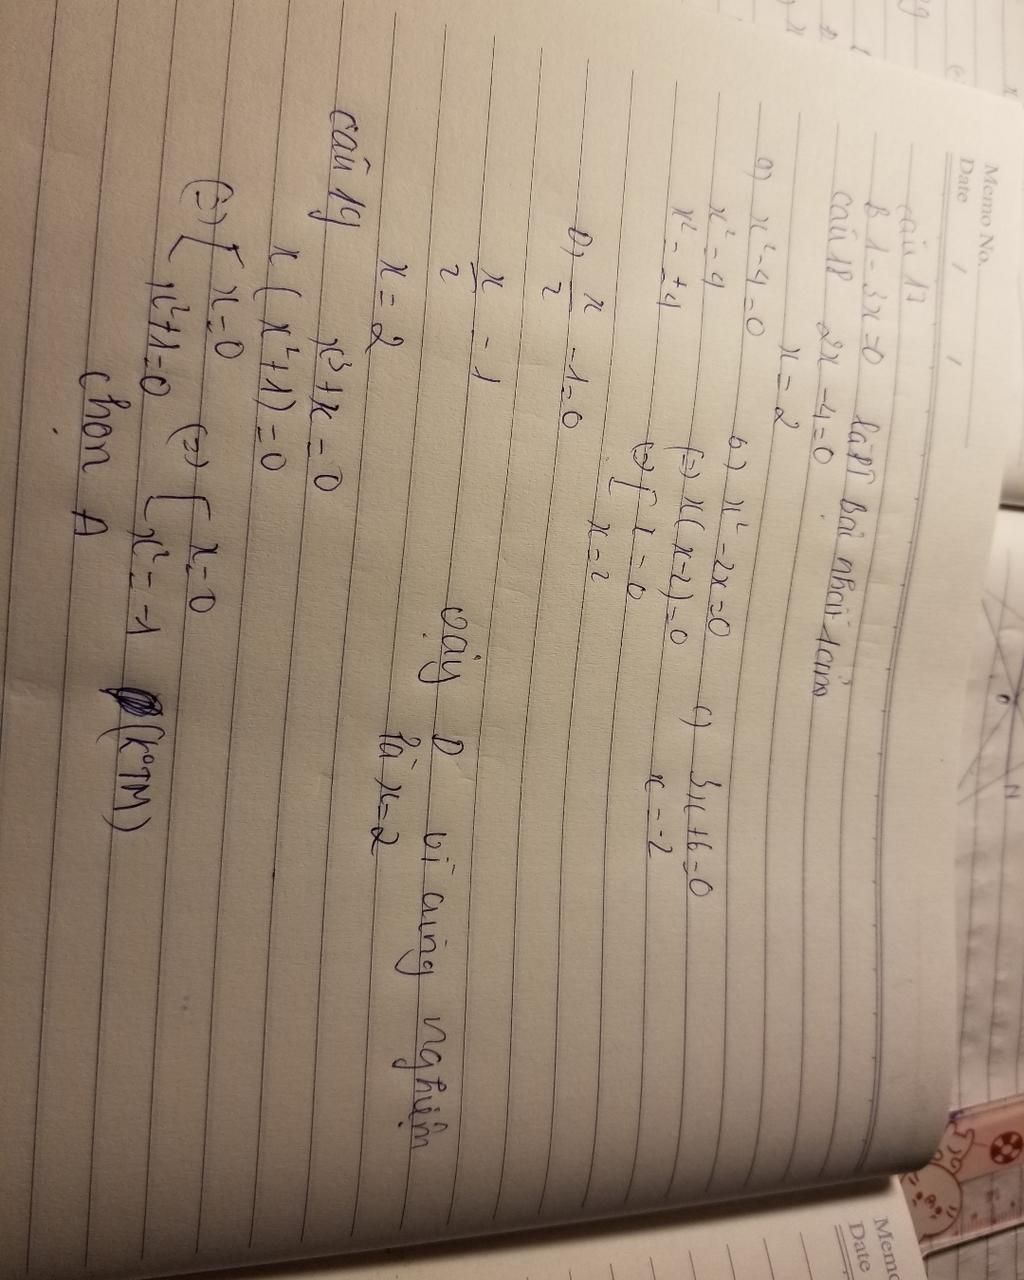 Memo No.
Date / /
câu 17
B 1 - 3x = 0 là PT Bậc nhất 1 ẩn
câu 18 2x - 4 = 0
x = 2
a) x² - 4 = 0 b) x² - 2x = 0 c) 3x + 6 = 0
x² = 4 (=) x(x-2) = 0 x = -2
x² = ±4 (=) [ x = 0
x = 2
D) x/2 - 1 = 0
x/2 = 1 vậy D vì cùng nghiệm
x = 2 là x = 2
câu 19 x³ + x = 0
x (x² + 1) = 0
(=) [ x = 0 (=) [ x = 0
x² + 1 = 0 x² = -1 (KoTM)
chọn A
Memo
Date
N